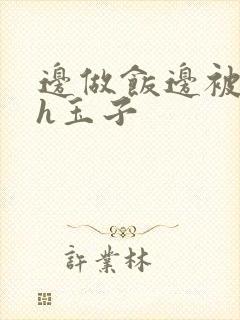 邊做飯邊被
h玉子
許業林